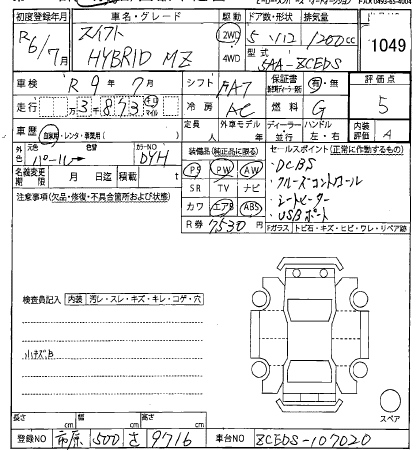 初度登録年月 車名・グレード 駆動 ドア数・形状 排気量
R6/7月 スイフト HYBRID MZ 2WD 4WD 5 1200cc 1049
型式 5AA-ZCEDS
車検 R 9年 7月 シフト FA7 保証書 有・無 評価点
走行 万 3千 873 キロ マイル 冷房 AC 燃料 G 5
車歴 自家用・レンタ・事業用( ) 定員 人 外車モデル 年 ディーラー 並行 ハンドル 左・右 内装評価 A
外色 元色 パール 色替 カラーNO DYH
装備品(純正品に限る) セールスポイント(正常に作動するもの)
名義変更期限 月 日迄 積載 t
PS PW AW
SR TV ナビ
カワ エアB ABS
R券 7530円
・DCBS
・クルーズコントロール
・シートヒーター
・USBポート
注意事項(欠品・修復・不具合箇所および状態)
Fガラス トビ石・キズ・ヒビ・ワレ・リペア跡
検査員記入 内装 汚レ・スレ・キズ・キレ・コゲ・穴
小キズB
スペア
長さ cm 幅 cm 高さ cm
登録NO 市原 500 さ 9716 車台NO ZCEDS-107020